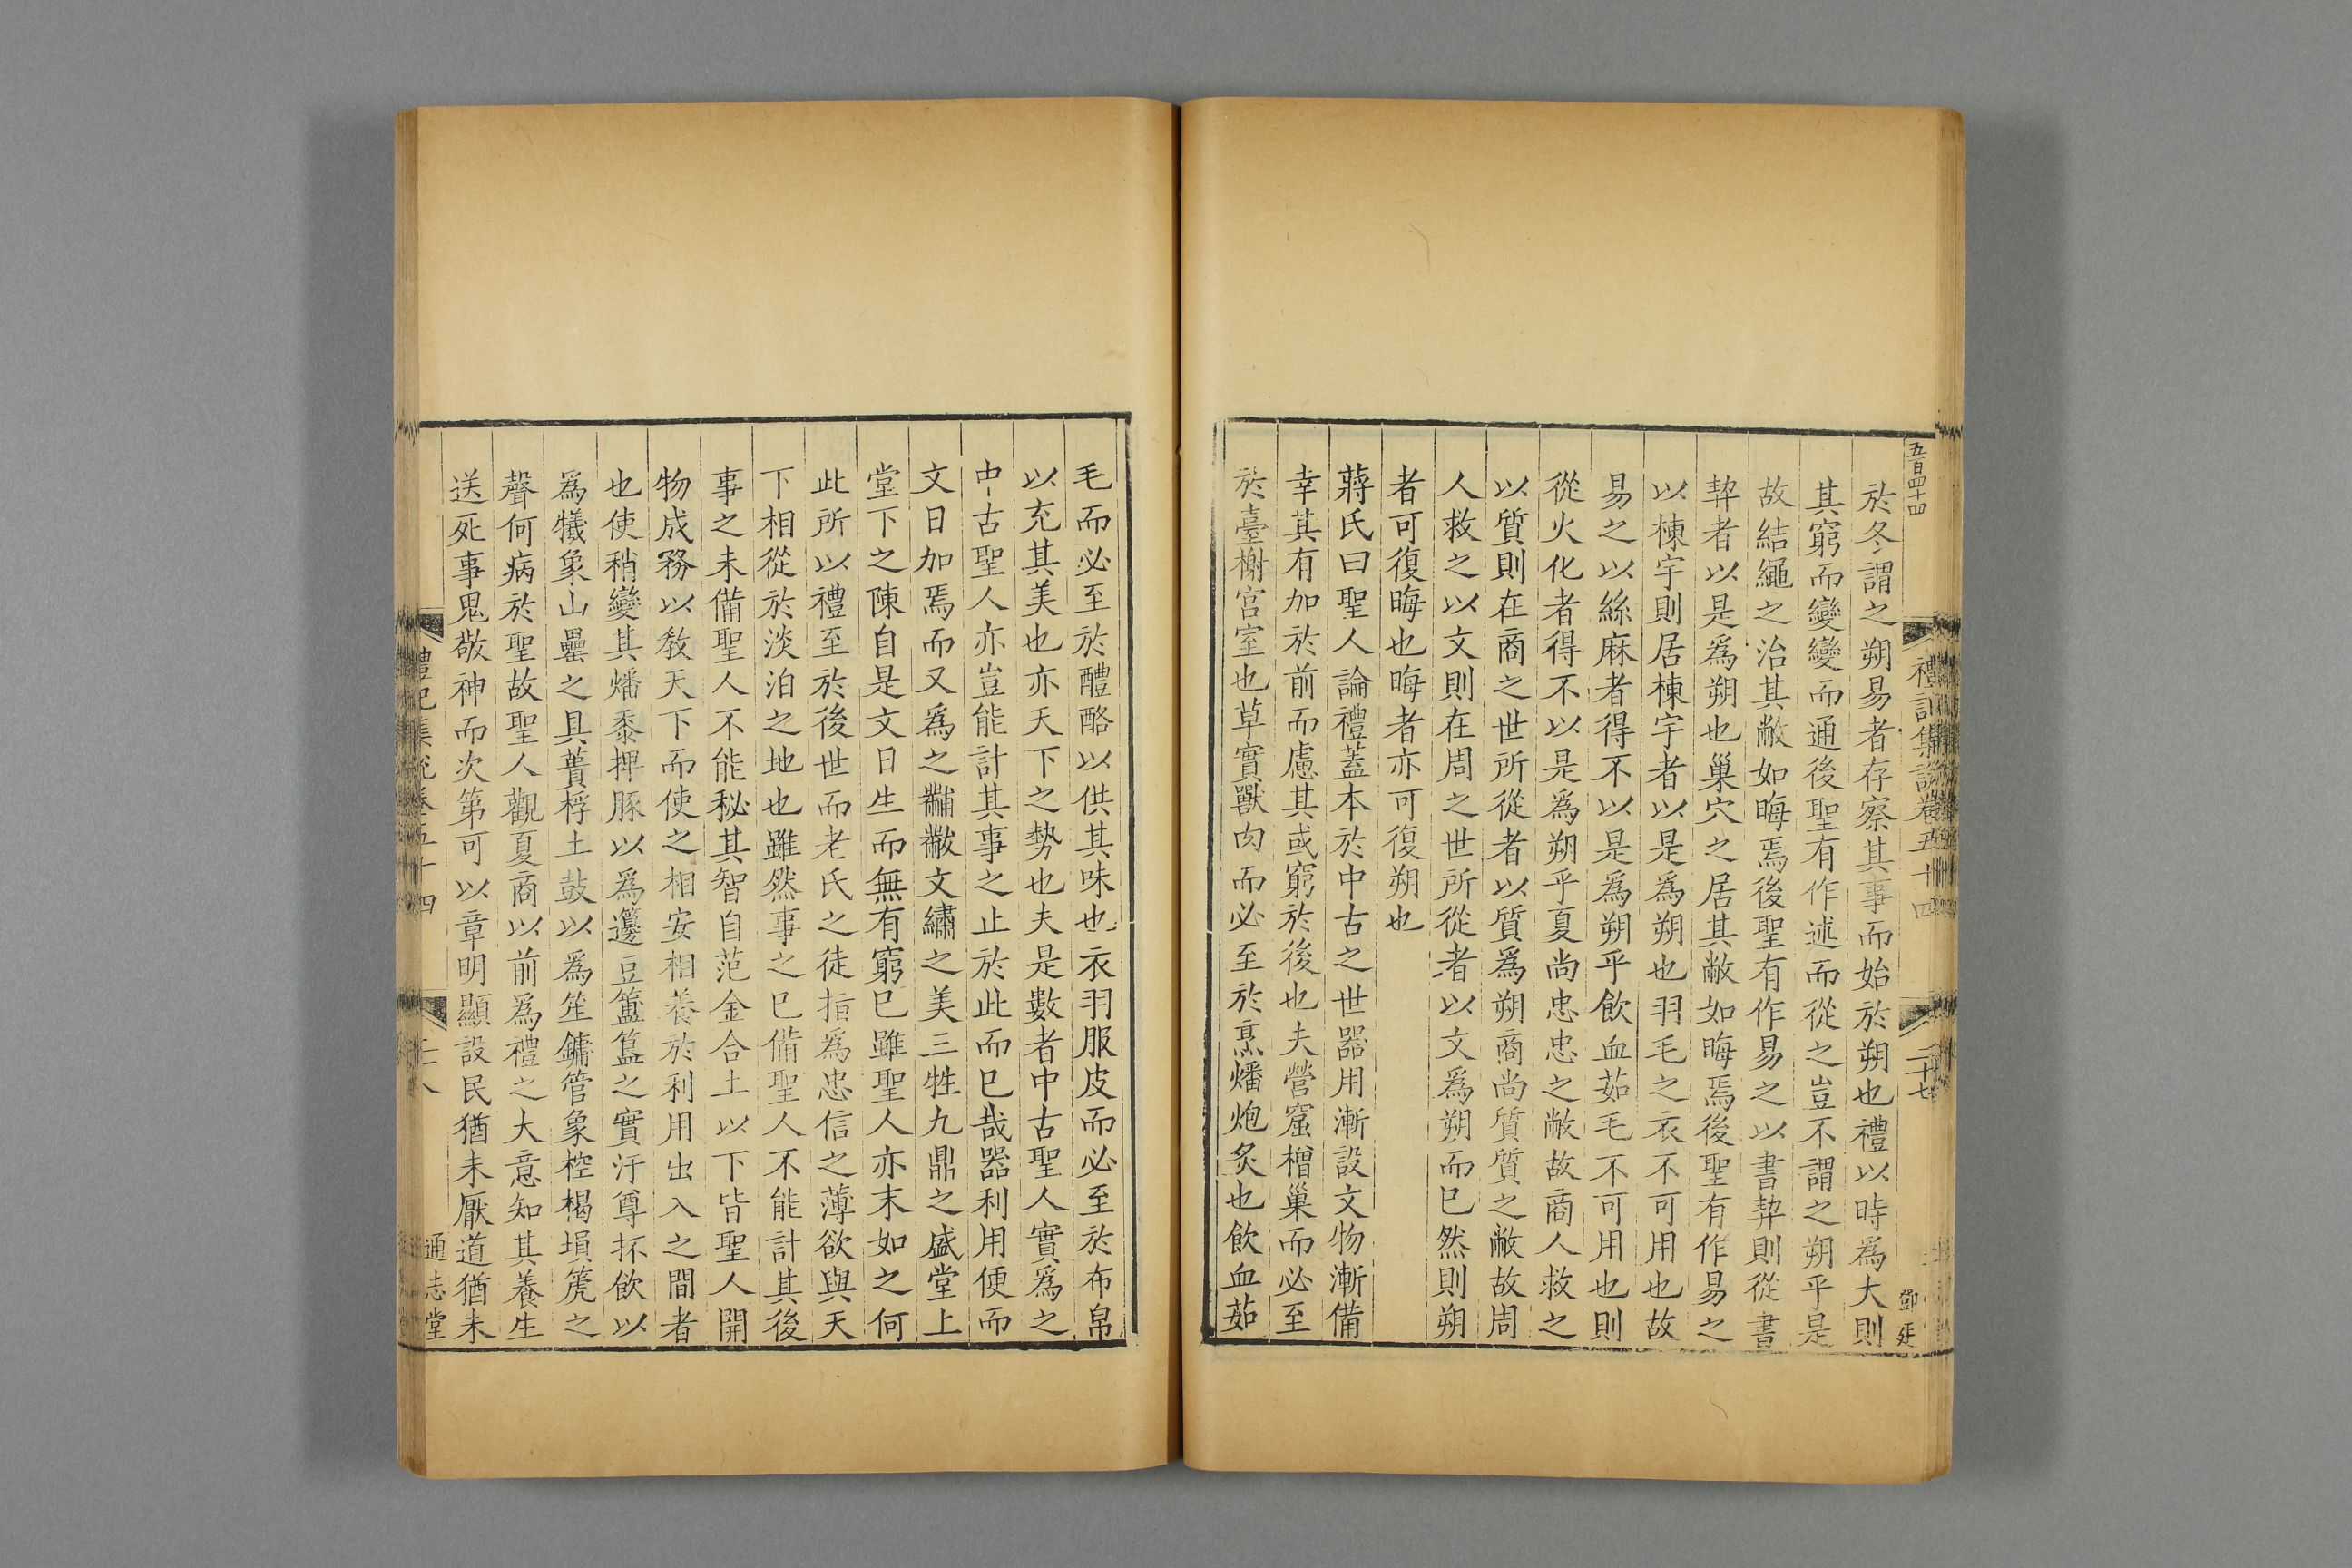 五百四十四
禮記集說卷五十四
二十七
鄧廷
於冬謂之朔易者存察其事而始於朔也禮以時爲大則
其窮而變變而通後聖有作述而從之豈不謂之朔乎是
故結繩之治其敝如晦焉後聖有作易之以書契則從書
契者以是爲朔也巢穴之居其敝如晦焉後聖有作易之
以棟宇則居棟宇者以是爲朔也羽毛之衣不可用也故
易之以絲麻者得不以是爲朔乎飲血茹毛不可用也則
從火化者得不以是爲朔乎夏尚忠忠之敝故商人救之
以質則在商之世所從者以質爲朔商尚質質之敝故周
人救之以文則在周之世所從者以文爲朔而已然則朔
者可復晦也晦者亦可復朔也
蔣氏曰聖人論禮蓋本於中古之世器用漸設文物漸備
幸其有加於前而慮其或窮於後也夫營窟橧巢而必至
於臺榭宮室也草實獸肉而必至於烹燔炮炙也飲血茹
毛而必至於醴酪以供其味也衣羽服皮而必至於布帛
以充其美也亦天下之勢也夫是數者中古聖人實爲之
中古聖人亦豈能計其事之止於此而已哉器利用便而
文日加焉而又爲之黼黻文繡之美三牲九鼎之盛堂上
堂下之陳自是文日生而無有窮已雖聖人亦末如之何
此所以禮至於後世而老氏之徒指爲忠信之薄欲與天
下相從於淡泊之地也雖然事之已備聖人不能計其後
事之未備聖人不能秘其智自范金合土以下皆聖人開
物成務以教天下而使之相安相養於利用出入之間者
也使稍變其燔黍捭豚以爲籩豆簠簋之實汙尊抔飲以
爲犧象山罍之具蕢桴土鼓以爲笙鏞管象椌楬塤箎之
聲何病於聖故聖人觀夏商以前爲禮之大意知其養生
送死事鬼敬神而次第可以章明顯設民猶未厭道猶未
禮記集說卷五十四
二十八
通志堂